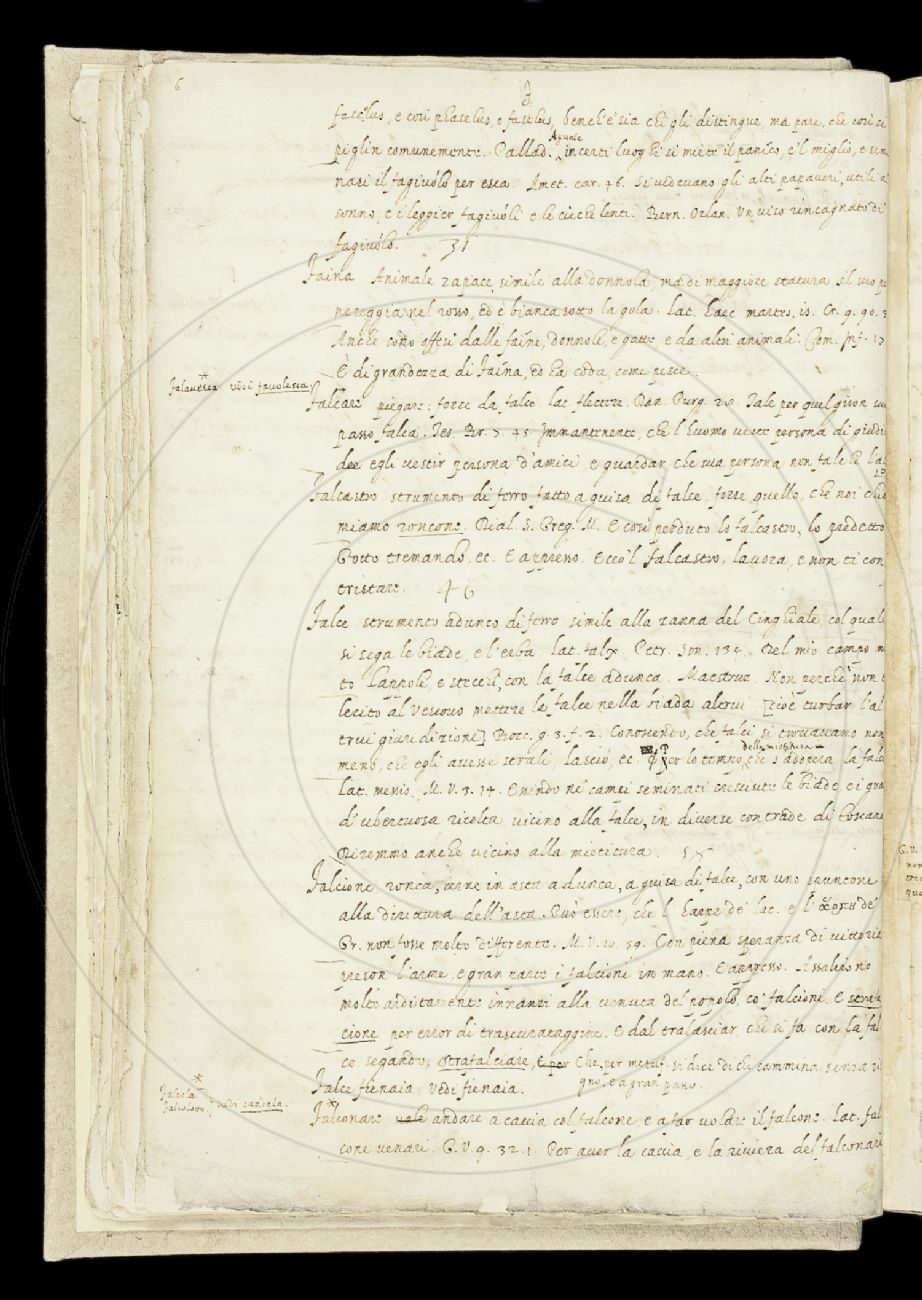 6
F
faselus, e così phaselus, o faselus, benchè sia chi gli distingue, ma pare, che così si
piglin comunemente. Pallad. Aprile in certi luoghi si miete il panico, e'l miglio, e semi
nasi il fagiuolo per esca. Amet. car. 46. Si vedevano gli alti papaveri, utili a
sonno, e i leggier fagiuoli e le cieche lenti. Bern. Orlan. Un viso rincagnato di
fagiuolo. 31
Faina Animale rapace, simile alla donnola, ma di maggiore statura il suo pe
nereggia nel rosso, ed è bianca sotto la gola. Lat. haec martes, is. Cr. 9. 90. 3
Anche sono offesi dalle faine, donnole, e gatte e da altri animali. Com. Inf. 17
È di grandezza di Faina, ed ha coda, come pesce.
Falavesca vedi favolesca
Falcare piegare: forse da falce. lat. flectere. Dan. Purg. 18. Tale per quel giron suo
passo falca. Tes. Br. 7. 45. Immantenente, che l huomo veste persona di giudi
dee egli vestir persona d'amici e guardar che sua persona non falchi l'al
Falcastro strumento di ferro fatto a guisa di falce, forse quello, che noi chia
miamo roncone. Dial. S. Greg. M. E così perduto lo falcastro, lo predetto
Gotto tremando, ec. E appresso. Ecco 'l falcastro, lavora, e non ti con
tristare. 46
Falce strumento adunco di ferro simile alla zanna del Cinghiale, col quale
si sega le biade, e l'erba. lat. falx. Petr. Son. 134. Nel mio campo m
to lappole, e stecchi, con la falce adunca. Maestruz. Non perchè non è
lecito al Vescovo mettere la falce nella biada altrui [cioè turbar l'al
trui giuridizione] Bocc. g. 3. f. 2. Conoscendo, che falci si trovavamo non
meno, che egli avesse strali, lasciò, ec. ¶ Per lo tempo della mietitura che s'adopera la falce
Lat. messis. M. V. 3. 14. Essendo ne' campi seminati cresciute le biade, e i gra
d'ubertuosa ricolta vicino alla falce, in diverse contrade di Toscana
Diremmo anche vicino alla mietitura. 55
Falcione ronca, arme in asta adunca, a guisa di falce, con uno spuntone
alla dirittura dell'asta. Può essere, che l' harpe de' lat. e l' ἅρπη de'
Gr. non fosse molto differente. M. V. 10. 59. Con piena speranza di vittoria
preson l'arme, e gran parte i falcioni in mano. E appresso. Assaliro no
molto arditamente innanzi alla venuta del popolo, co' falcioni. E strafal
cione per error di trascurataggine. E dal tralasciar, che si fa con la fal
ce, segando, strafalciare, e per Che, per metaf. si dice di chi cammina senza ri
gno, e a gran passo.
Falce fienaia vedi fienaia.
Falcola
Falcolotto, vedi candela.
Falconare vale andare a caccia col falcone e a far volare il falcone. Lat. fal
cone venari. G. V. 9. 32. 1. Per aver la caccia, e la riviera del falconare
G. V.